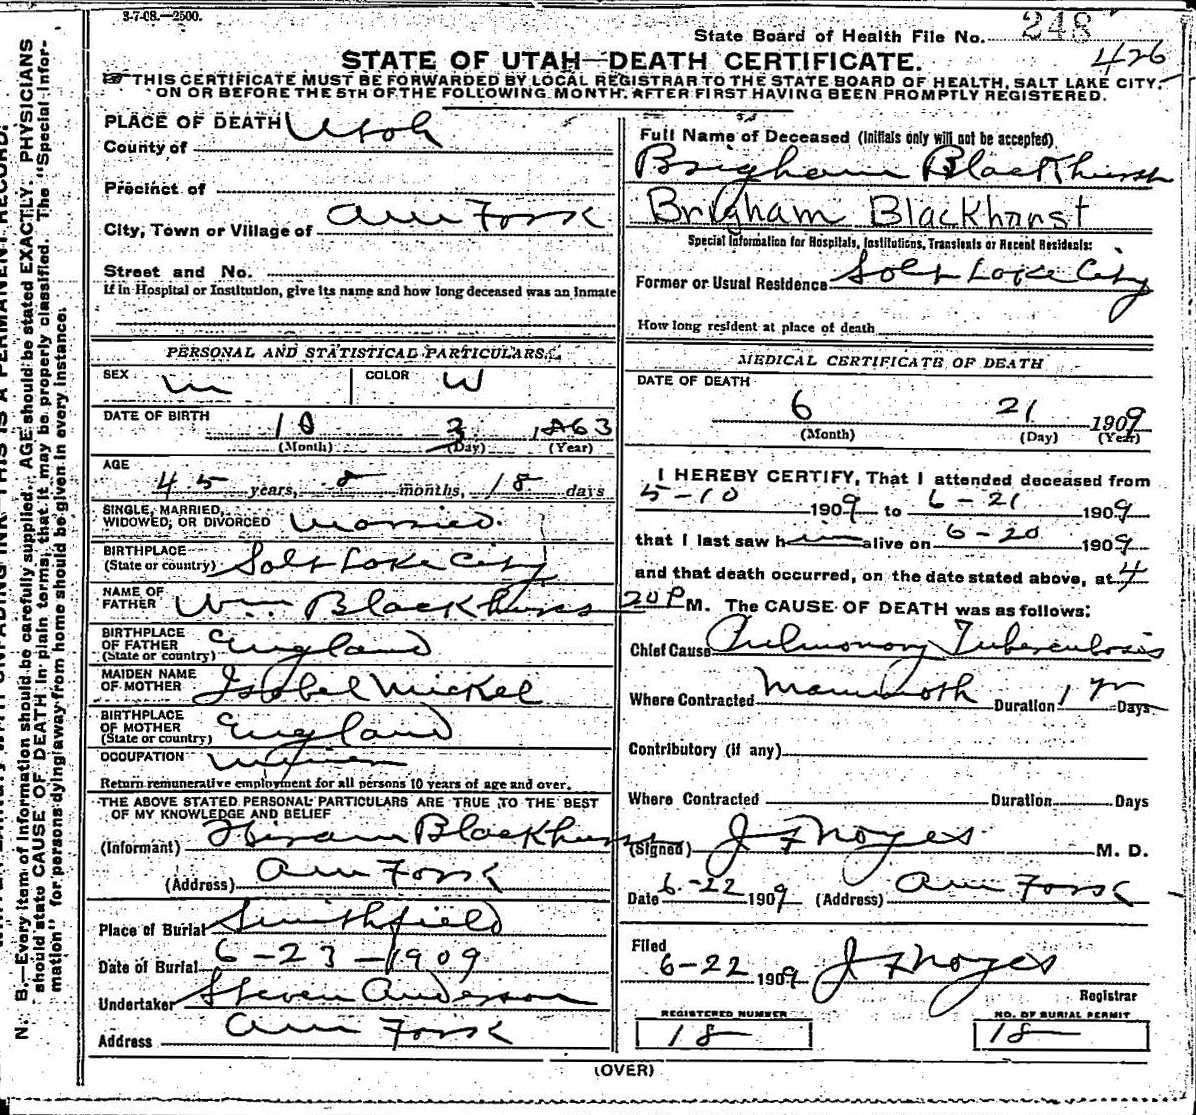 3-7-08.—2500.
State Board of Health File No. 248
426
STATE OF UTAH—DEATH CERTIFICATE.
THIS CERTIFICATE MUST BE FORWARDED BY LOCAL REGISTRAR TO THE STATE BOARD OF HEALTH, SALT LAKE CITY,
ON OR BEFORE THE 5TH OF THE FOLLOWING MONTH. AFTER FIRST HAVING BEEN PROMPTLY REGISTERED.
PLACE OF DEATH
County of Utah
Precinct of
City, Town or Village of Am Fork
Street and No.
If in Hospital or Institution, give its name and how long deceased was an Inmate
PERSONAL AND STATISTICAL PARTICULARS.
SEX m COLOR W
DATE OF BIRTH
10 3 1863
(Month) (Day) (Year)
AGE
45 years, 8 months, 18 days
SINGLE, MARRIED,
WIDOWED, OR DIVORCED married.
BIRTHPLACE
(State or country) Salt Lake City
NAME OF
FATHER Wm. Blackhurst
BIRTHPLACE
OF FATHER
(State or country) England
MAIDEN NAME
OF MOTHER Isabel Mickel
BIRTHPLACE
OF MOTHER
(State or country) England
OCCUPATION
Return remunerative employment for all persons 10 years of age and over.
THE ABOVE STATED PERSONAL PARTICULARS ARE TRUE TO THE BEST
OF MY KNOWLEDGE AND BELIEF
(Informant) Hiram Blackhurst
(Address) Am Fork
Place of Burial Smithfield
Date of Burial 6-23-1909
Undertaker Steven Anderson
Address Am Fork
Full Name of Deceased (Initials only will not be accepted)
Brigham Blackhurst
Brigham Blackhurst
Special Information for Hospitals, Institutions, Transients or Recent Residents:
Former or Usual Residence Salt Lake City
How long resident at place of death
MEDICAL CERTIFICATE OF DEATH
DATE OF DEATH
6 21 1909
(Month) (Day) (Year)
I HEREBY CERTIFY, That I attended deceased from
5-10 1909 to 6-21 1909
that I last saw him alive on 6-20 1909
and that death occurred, on the date stated above, at 4
20 P M. The CAUSE OF DEATH was as follows:
Chief Cause Pulmonary Tuberculosis
Where Contracted Mammoth Duration 1 yr Days
Contributory (if any)
Where Contracted Duration Days
(Signed) J F Noyes M. D.
Date 6-22 1909 (Address) Am Fork
Filed
6-22 1909 J F Noyes
Registrar
REGISTERED NUMBER
18
NO. OF BURIAL PERMIT
18
(OVER)
N. B.—Every item of information should be carefully supplied. AGE should be stated EXACTLY. PHYSICIANS
should state CAUSE OF DEATH in plain terms, that it may be properly classified. The "Special Infor-
mation" for persons dying away from home should be given in every instance.